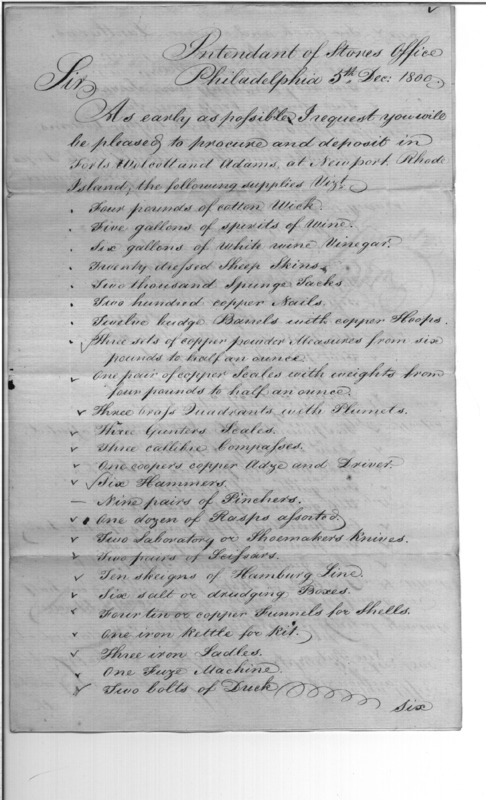 Intendant of Stores Office
Philadelphia 5th Dec: 1800.
Sir
As early as possible, I request you will
be pleased to procure and deposit in
Forts Wolcott and Adams, at Newport, Rhode
Island, the following supplies Vizt.
Four pounds of cotton Wick.
Five gallons of spirits of Wine.
Six gallons of White wine Vinegar.
Twenty dressed Sheep Skins.
Two thousand Spunge Tacks
Two hundred copper Nails.
Twelve budge Barrels with copper Hoops.
Three sets of copper powder Measures from six
pounds to half an ounce.
One pair of copper Scales with weights from
four pounds to half an ounce.
Three brass Quadrants with Plumets.
Three Gunters Scales.
Three callibre Compasses.
One coopers copper Adze and Driver.
Six Hammers.
Nine pairs of Pinchers.
One dozen of Rasps assorted,
Two Laboratory or Shoemakers Knives.
Two pairs of Scissars.
Ten skeigns of Hamburg Line.
Six salt or drudging Boxes.
Four tin or copper Funnels for Shells.
One iron Kettle for Kit.
Three iron Ladles.
One Fuze Machine
Two bolts of Duck
Six